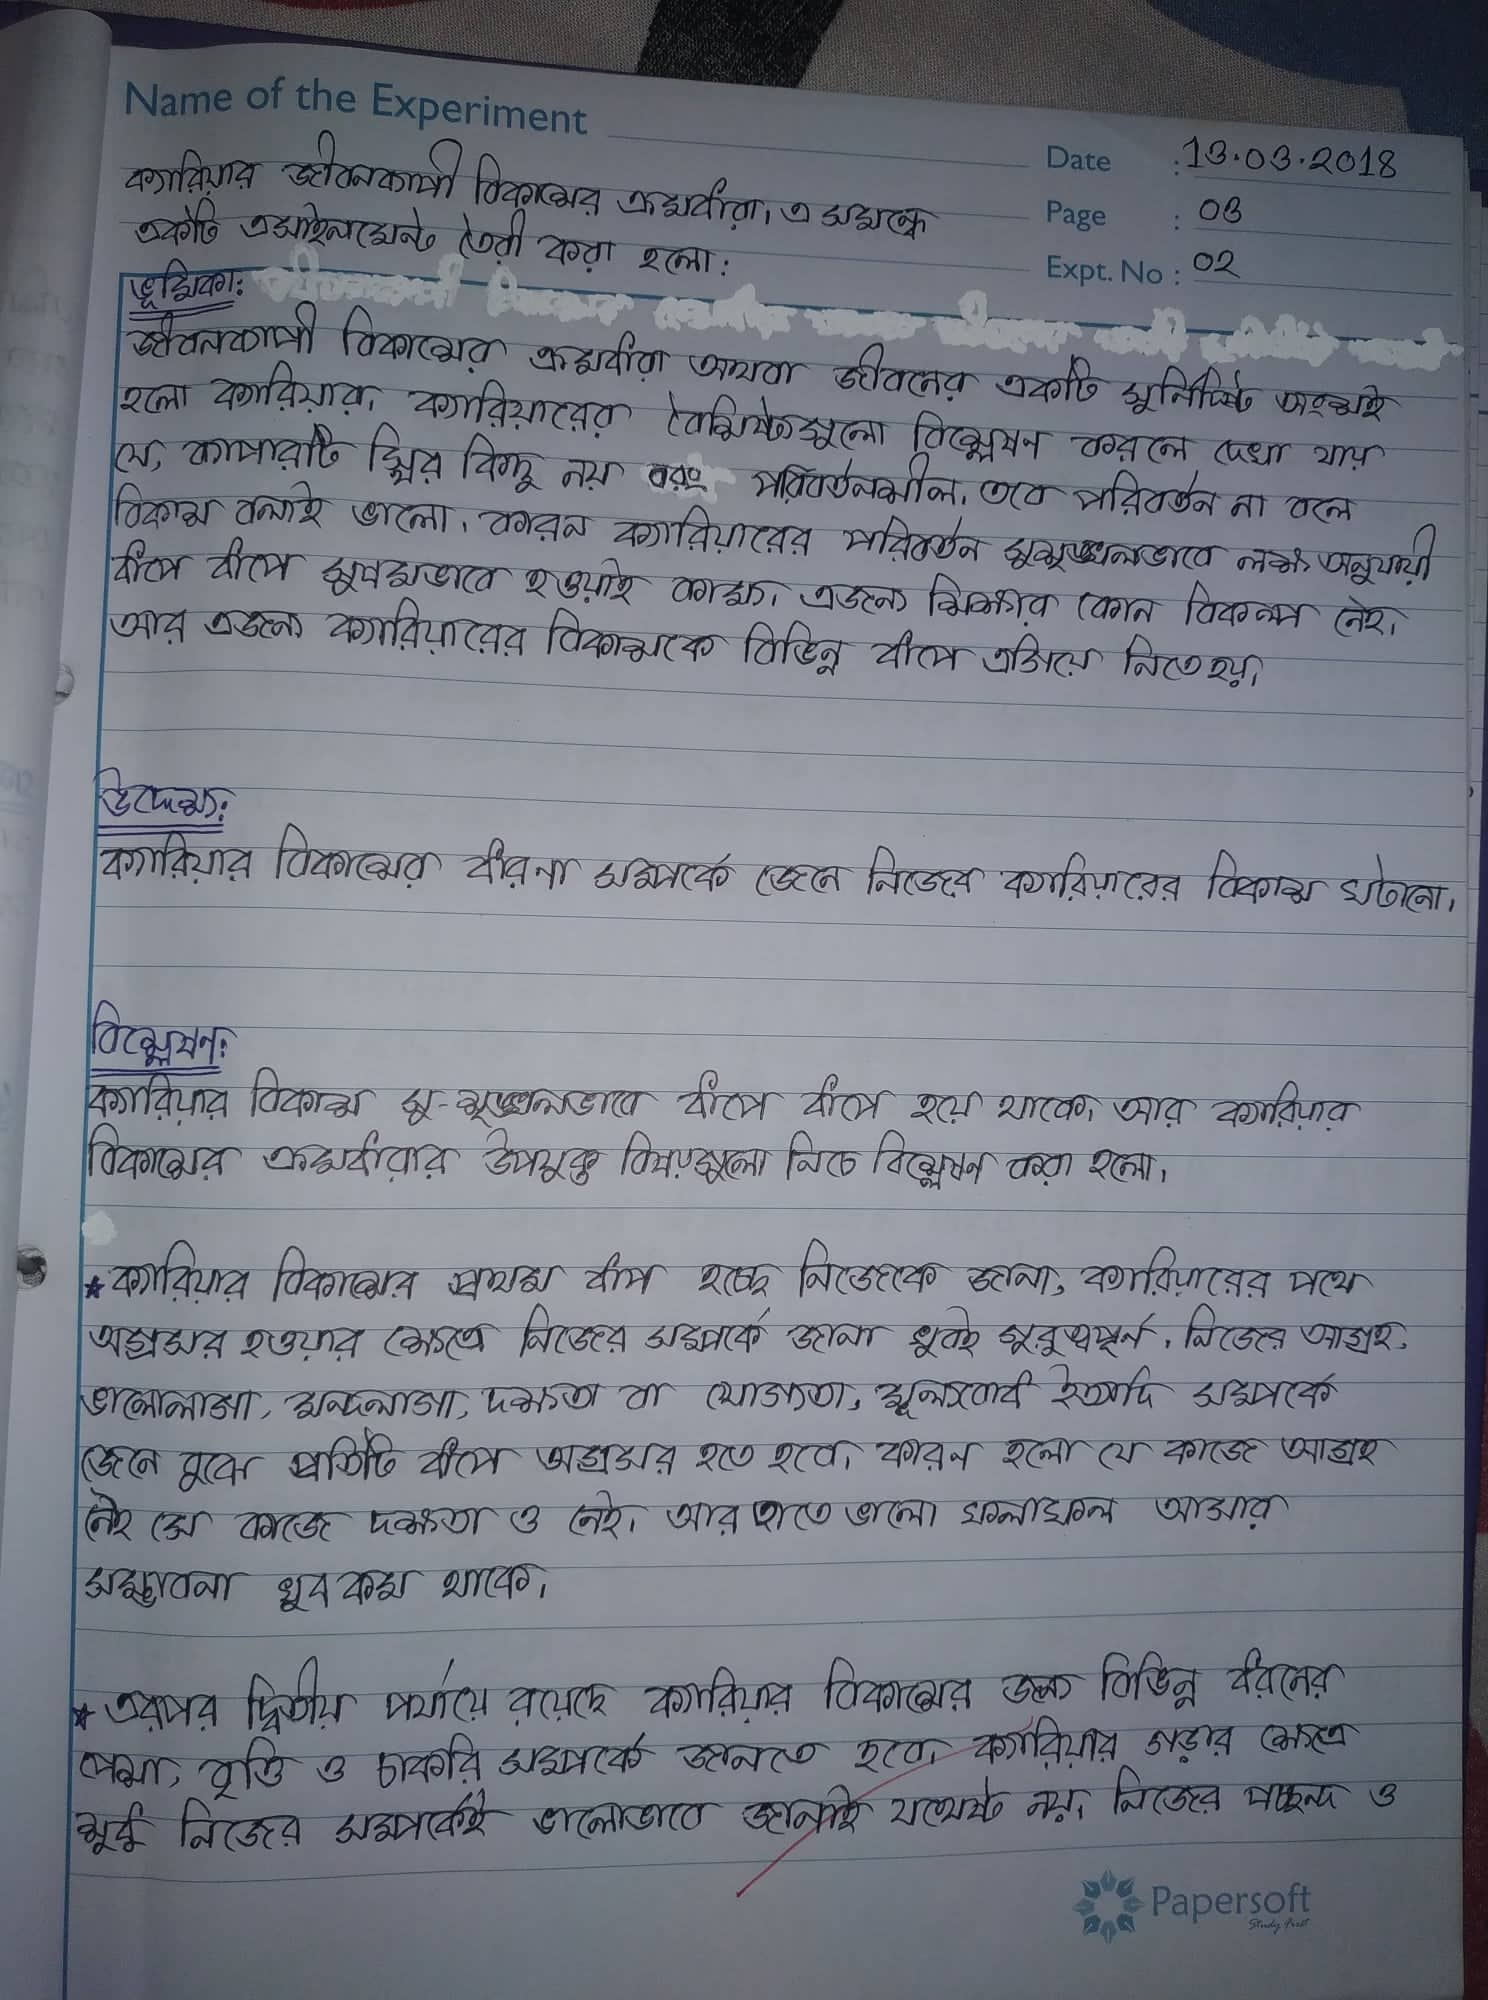 Name of the Experiment
Date : 13.03.2018
ক্যারিয়ার জীবনব্যাপী বিকাশের ক্রমধারা। এ সম্মন্ধে
Page : 03
একটি এসাইনমেন্ট তৈরী করা হলো:
Expt. No : 02
ভূমিকা:
জীবনব্যাপী বিকাশের ক্রমধারা অথবা জীবনের একটি সুনির্দিষ্ট অংশই
হলো ক্যারিয়ার। ক্যারিয়ারের বৈশিষ্ট্যগুলো বিশ্লেষণ করলে দেখা যায়
যে, ব্যাপারটি স্থির কিছু নয় বরং পরিবর্তনশীল। তবে পরিবর্তন না বলে
বিকাশ বলাই ভালো। কারন ক্যারিয়ারের পরিবর্তন সুশৃঙ্খলভাবে লক্ষ্য অনুযায়ী
ধাপে ধাপে সুষমভাবে হওয়াই কাম্য। এজন্য শিক্ষার কোন বিকল্প নেই।
আর এজন্য ক্যারিয়ারের বিকাশকে বিভিন্ন ধাপে এগিয়ে নিতে হয়।
উদ্দেশ্য:
ক্যারিয়ার বিকাশের ধারনা সম্পর্কে জেনে নিজের ক্যারিয়ারের বিকাশ ঘটানো।
বিশ্লেষণ:
ক্যারিয়ার বিকাশ সু-শৃঙ্খলভাবে ধাপে ধাপে হয়ে থাকে। আর ক্যারিয়ার
বিকাশের ক্রমধারার উপযুক্ত বিষয়গুলো নিচে বিশ্লেষণ করা হলো।
★ ক্যারিয়ার বিকাশের প্রথম ধাপ হচ্ছে নিজেকে জানা, ক্যারিয়ারের পথে
অগ্রসর হওয়ার ক্ষেত্রে নিজের সম্পর্কে জানা খুবই গুরুত্বপূর্ন। নিজের আগ্রহ,
ভালোলাগা, মন্দলাগা, দক্ষতা বা যোগ্যতা, মূল্যবোধ ইত্যাদি সম্পর্কে
জেনে বুঝে প্রতিটি ধাপে অগ্রসর হতে হবে। কারন হলো যে কাজে আগ্রহ
নেই সে কাজে দক্ষতা ও নেই। আর তাতে ভালো ফলাফল আসার
সম্ভাবনা খুব কম থাকে।
★ এরপর দ্বিতীয় পর্যায়ে রয়েছে ক্যারিয়ার বিকাশের জন্য বিভিন্ন ধরনের
পেশা, বৃত্তি ও চাকরি সম্পর্কে জানতে হবে। ক্যারিয়ার গড়ার ক্ষেত্রে
শুধু নিজের সম্পর্কেই ভালোভাবে জানাই যথেষ্ট নয়। নিজের পছন্দ ও
Papersoft
Study First